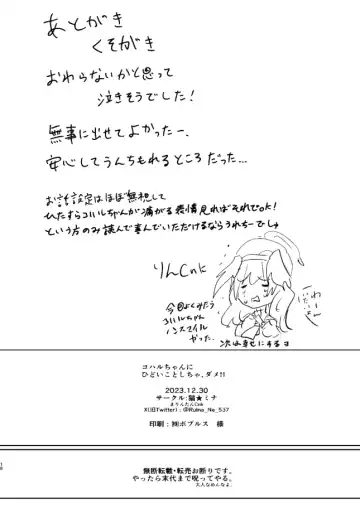 あとがき
くそがき
おわらないかと思って
泣きそうでした!
無事に出せてよかったー、
安心してうんちもれるところだった...
お話設定はほぼ無視して
ひたすらコハルちゃんが痛がる表情見ればそれでok!
という方のみ読んで喜んでいただけるならうれちーでしょ
りんCnk
今回よくみたら
コハルちゃん
ノンスマイル
やった。
わー
次は幸せにするヨ
コハルちゃんに
ひどいことしちゃ、ダメ!!
2023.12.30
サークル:猫★ミナ
まりんたんCnk
X(旧Twitter):@Ruina_Na_537
印刷:㈲ポプルス 様
無断転載・転売お断りです。
やったら末代まで呪ってやる。
大人なめんなよ。